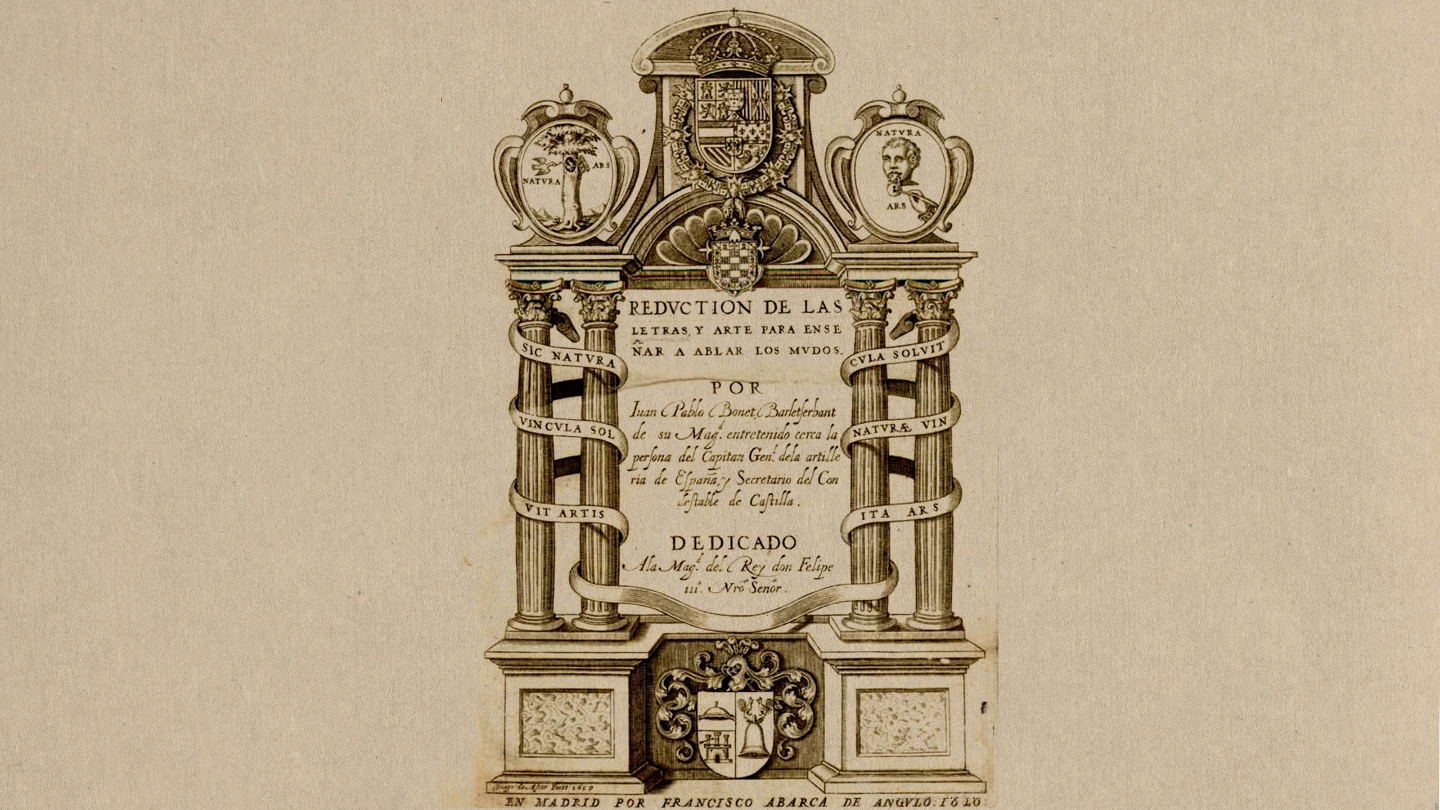 NATVRA
ARS
NATVRA
ARS
REDVCTION DE LAS
LETRAS, Y ARTE PARA ENSE
ÑAR A ABLAR LOS MVDOS.
POR
Iuan Pablo Bonet, Barletserbant
de su Magᵈ. entretenido cerca la
persona del Capitan Genˡ. dela artille
ria de España, y Secretario del Con
destable de Castilla.
DEDICADO
Ala Magᵈ. del Rey don Felipe
iii. Nrō Señor.
SIC NATVRA
VINCVLA SOL
VIT ARTIS
CVLA SOLVIT
NATVRÆ VIN
ITA ARS
Diego de Astor Fecit 1619
EN MADRID POR FRANCISCO ABARCA DE ANGVLO.